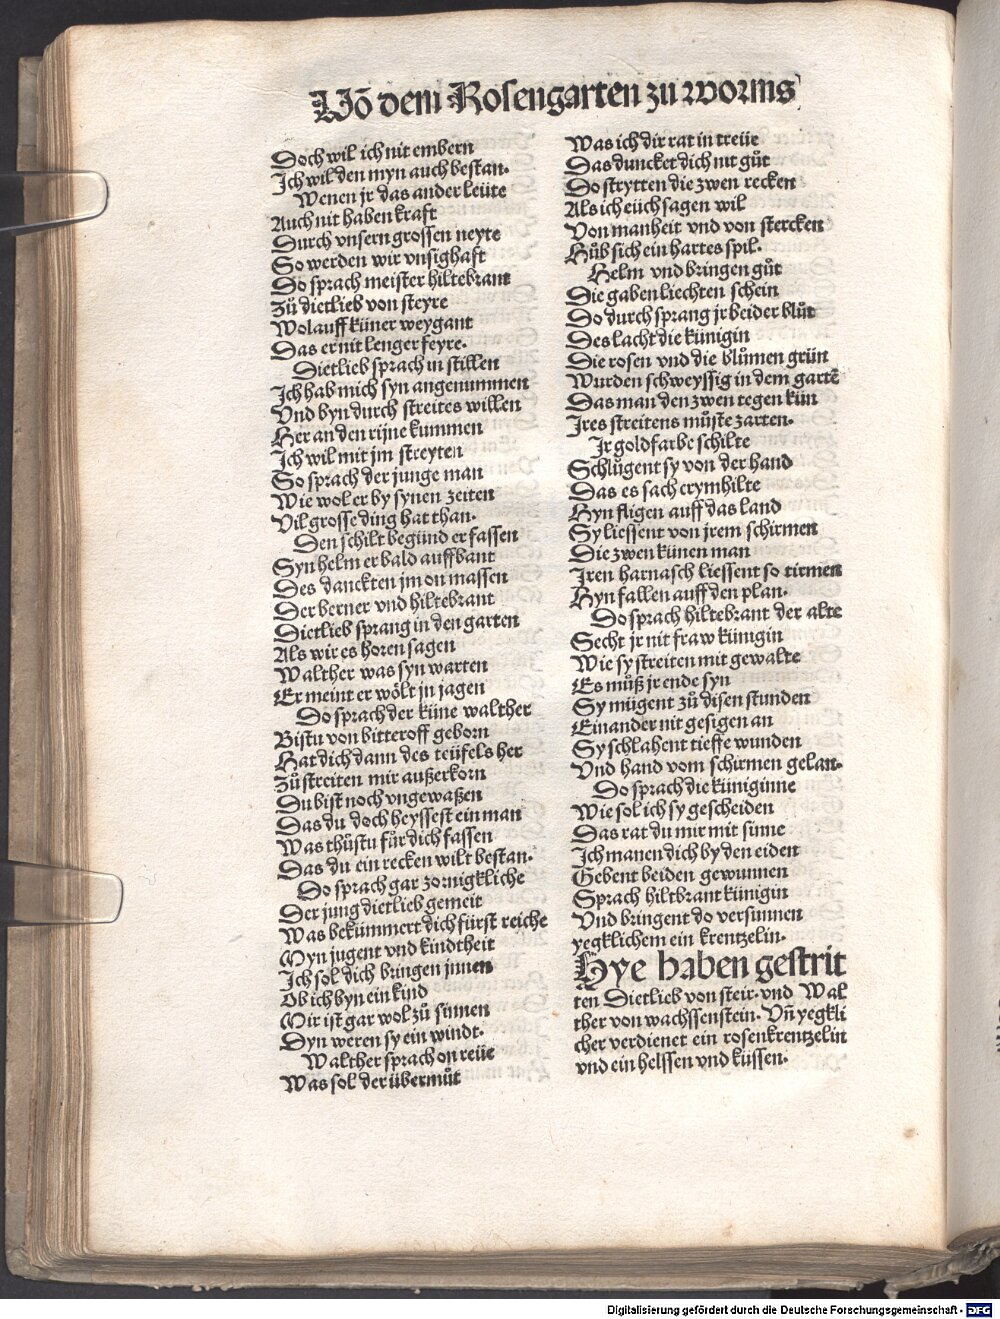 Uõ dem Rosengarten zu worms
Doch wil ich nit embern
Jch wil den myn auch bestan.
Wenen jr das ander leüte
Auch nit haben kraft
Durch vnsern grossen neyte
So werden wir vnsighaft
Do sprach meister hiltebrant
Zů dietlieb von steyre
Wolauff küner weygant
Das er nit lenger feyre.
Dietlieb sprach in stillen
Jch hab mich syn angenummen
Vnd byn durch streites willen
Her an den rijne kummen
Jch wil mit jm streyten
So sprach der junge man
Wie wol er by synen zeiten
Vil grosse ding hat than.
Den schilt begund er fassen
Syn helm er bald auffbant
Des danckten jm on massen
Der berner vnd hiltebrant
Dietlieb sprang in den garten
Als wir es horen sagen
Walther was syn warten
Er meint er wölt jn jagen
Do sprach der küne walther
Bistu von bitteroff geborn
Hat dich dann des teüfels her
Zů streiten mir außerkorn
Du bist noch vngewaßen
Das du doch heyssest ein man
Was thůstu für dich fassen
Das du ein recken wilt bestan.
Do sprach gar zornigkliche
Der jung dietlieb gemeit
Was bekümmert dich fürst reiche
Myn jugent vnd kindtheit
Jch sol dich bringen jnnen
Ob ich byn ein kind
Mir ist gar wol zů sinnen
Dyn weren sy ein windt.
Walther sprach on reüe
Was sol der übermůt
Was ich dir rat in treüe
Das duncket dich nit gůt
Do strytten die zwen recken
Als ich eüch sagen wil
Von manheit vnd von stercken
Hůb sich ein hartes spil.
Helm vnd bringen gůt
Die gaben liechten schein
Do durch sprang jr beider blůt
Des lacht die künigin
Die rosen vnd die blůmen grün
Wurden schweyssig in dem gartē
Das man den zwen tegen kün
Jres streitens můste zarten.
Jr goldfarbe schilte
Schlůgent sy von der hand
Das es sach crymhilte
Hyn fligen auff das land
Sy liessent von jrem schirmen
Die zwen künen man
Jren harnasch liessent so tirmen
Hyn fallen auff den plan.
Do sprach hiltebrant der alte
Secht jr nit fraw künigin
Wie sy streiten mit gewalte
Es můß jr ende syn
Sy mügent zů disen stunden
Einander nit gesigen an
Sy schlahent tieffe wunden
Vnd hand vom schirmen gelan.
Do sprach die küniginne
Wie sol ich sy gescheiden
Das rat du mir mit sinne
Jch manen dich by den eiden
Gebent beiden gewunnen
Sprach hiltbrant künigin
Vnd bringent do versunnen
yegklichem ein krentzelin.
Hye haben gestrit
ten Dietlieb von steir. vnd Wal
ther von wachssenstein. Vn̄ yegkli
cher verdienet ein rosenkrentzelin
vnd ein helssen vnd küssen.
Digitalisierung gefördert durch die Deutsche Forschungsgemeinschaft - DFG